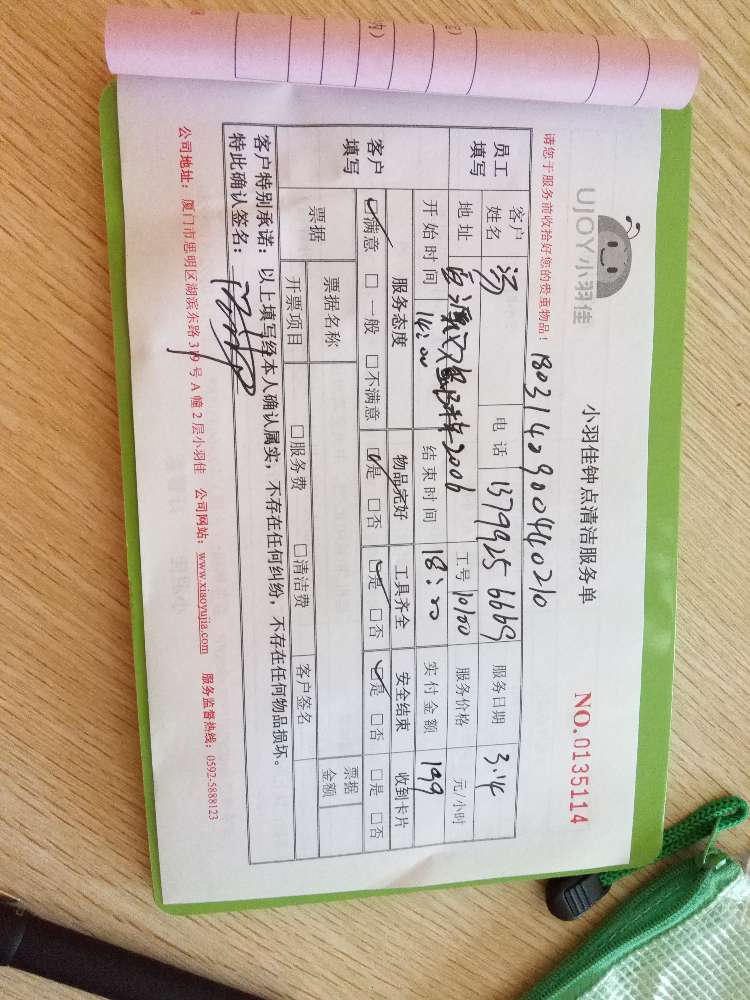 UJOY小羽佳
小羽佳钟点清洁服务单
NO.0135114
请您于服务前收拾好您的贵重物品！
1803140900440210
员工填写
客户姓名 汤 电话 13799256669 服务日期 3.14
地址 2006 工号 10100 服务价格 元/小时
开始时间 14:00 结束时间 18:00 实付金额 199
客户填写
服务态度 物品完好 工具齐全 安全结束 收到卡片
☑满意 □一般 □不满意 ☑是 □否 ☑是 □否 ☑是 □否 □是 □否
票据 票据名称 票据金额
开票项目 □服务费 □清洁费 客户签名
客户特别承诺：以上填写经本人确认属实，不存在任何纠纷，不存在任何物品损坏。
特此确认签名：
公司地址：厦门市思明区湖滨东路319号A幢2层小羽佳 公司网站：www.xiaoyujia.com 服务监督热线：0592-5888123